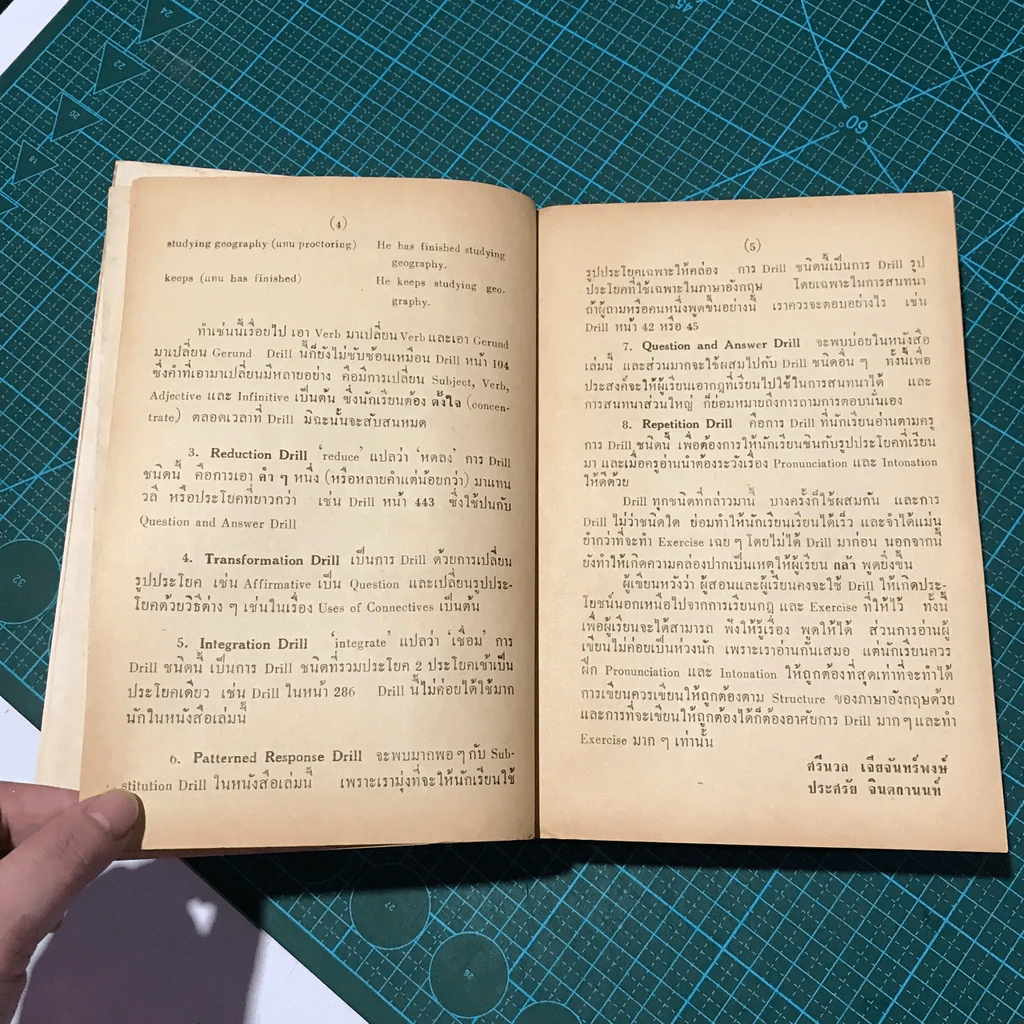 (4)
studying geography (แทน proctoring) He has finished studying
geography.
keeps (แทน has finished) He keeps studying geo-
graphy.
ทำเช่นนี้เรื่อยไป เอา Verb มาเปลี่ยน Verb และเอา Gerund
มาเปลี่ยน Gerund Drill นี้ก็ยังไม่ซับซ้อนเหมือน Drill หน้า 104
ซึ่งคำที่เอามาเปลี่ยนมีหลายอย่าง คือมีการเปลี่ยน Subject, Verb,
Adjective และ Infinitive เป็นต้น ซึ่งนักเรียนต้อง ตั้งใจ (concen-
trate) ตลอดเวลาที่ Drill มิฉะนั้นจะสับสนหมด
3. Reduction Drill 'reduce' แปลว่า 'หดลง' การ Drill
ชนิดนี้ คือการเอา คำ ๆ หนึ่ง (หรือหลายคำแต่น้อยกว่า) มาแทน
วลี หรือประโยคที่ยาวกว่า เช่น Drill หน้า 443 ซึ่งใช้ปนกับ
Question and Answer Drill
4. Transformation Drill เป็นการ Drill ด้วยการเปลี่ยน
รูปประโยค เช่น Affirmative เป็น Question และเปลี่ยนรูปประ-
โยคด้วยวิธีต่าง ๆ เช่นในเรื่อง Uses of Connectives เป็นต้น
5. Integration Drill 'integrate' แปลว่า 'เชื่อม' การ
Drill ชนิดนี้ เป็นการ Drill ชนิดที่รวมประโยค 2 ประโยคเข้าเป็น
ประโยคเดียว เช่น Drill ในหน้า 286 Drill นี้ไม่ค่อยได้ใช้มาก
นักในหนังสือเล่มนี้
6. Patterned Response Drill จะพบมากพอ ๆ กับ Sub-
stitution Drill ในหนังสือเล่มนี้ เพราะเรามุ่งที่จะให้นักเรียนใช้
(5)
รูปประโยคเฉพาะให้คล่อง การ Drill ชนิดนี้เป็นการ Drill รูป
ประโยคที่ใช้เฉพาะในภาษาอังกฤษ โดยเฉพาะในการสนทนา
ถ้าผู้ถามหรือคนหนึ่งพูดขึ้นอย่างนี้ เราควรจะตอบอย่างไร เช่น
Drill หน้า 42 หรือ 45
7. Question and Answer Drill จะพบบ่อยในหนังสือ
เล่มนี้ และส่วนมากจะใช้ผสมไปกับ Drill ชนิดอื่น ๆ ทั้งนี้เพื่อ
ประสงค์จะให้ผู้เรียนเอากฎที่เรียนไปใช้ในการสนทนาได้ และ
การสนทนาส่วนใหญ่ ก็ย่อมหมายถึงการถามการตอบนั่นเอง
8. Repetition Drill คือการ Drill ที่นักเรียนอ่านตามครู
การ Drill ชนิดนี้ เพื่อต้องการให้นักเรียนชินกับรูปประโยคที่เรียน
มา และเมื่อครูอ่านนำต้องระวังเรื่อง Pronunciation และ Intonation
ให้ดีด้วย
Drill ทุกชนิดที่กล่าวมานี้ บางครั้งก็ใช้ผสมกัน และการ
Drill ไม่ว่าชนิดใด ย่อมทำให้นักเรียนเรียนได้เร็ว และจำได้แม่น
ยำกว่าที่จะทำ Exercise เฉย ๆ โดยไม่ได้ Drill มาก่อน นอกจากนี้
ยังทำให้เกิดความคล่องปากเป็นเหตุให้ผู้เรียน กล้า พูดยิ่งขึ้น
ผู้เขียนหวังว่า ผู้สอนและผู้เรียนคงจะใช้ Drill ให้เกิดประ-
โยชน์นอกเหนือไปจากการเรียนกฎ และ Exercise ที่ให้ไว้ ทั้งนี้
เพื่อผู้เรียนจะได้สามารถ ฟังให้รู้เรื่อง พูดให้ได้ ส่วนการอ่านผู้
เขียนไม่ค่อยเป็นห่วงนัก เพราะเราอ่านกันเสมอ แต่นักเรียนควร
ฝึก Pronunciation และ Intonation ให้ถูกต้องที่สุดเท่าที่จะทำได้
การเขียนควรเขียนให้ถูกต้องตาม Structure ของภาษาอังกฤษด้วย
และการที่จะเขียนให้ถูกต้องได้ก็ต้องอาศัยการ Drill มาก ๆ และทำ
Exercise มาก ๆ เท่านั้น
ศรีนวล เจียจันทร์พงษ์
ประสรัย จินดกานนท์